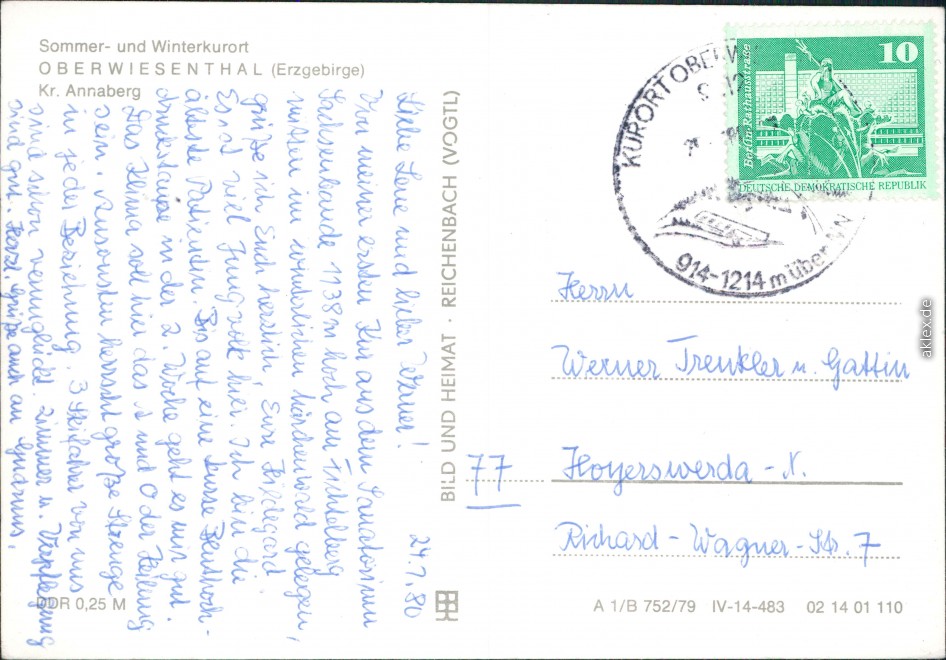 Sommer- und Winterkurort
OBERWIESENTHAL (Erzgebirge)
Kr. Annaberg
24.1.80
Liebe Leute und lieber Werner!
Von meiner ersten Kur aus dem Sanatorium
Sachsenbaude 1138 m hoch am Fichtelberg
mitten im winterlichen Märchenwald gelegen,
grüße ich Euch herzlich, Eure Hildegard
Es ist viel Jungvolk hier. Ich bin die
älteste Patientin. Bis auf eine kurze
in der 2. Woche geht es mir gut.
Das Klima soll hier das A und O der Heilung
sein. Ansonsten herrscht große Strenge
in jeder Beziehung. 3 Skifahrer von uns
sind schon verunglückt. Zimmer u. Verpflegung
sind gut. Herzl. Grüße auch an
DDR 0,25 M
BILD UND HEIMAT · REICHENBACH (VOGTL)
KURORT OBERW
914-1214 m über NN
10
Berlin-Rathausstraße
DEUTSCHE DEMOKRATISCHE REPUBLIK
Herrn
Werner Trenkler u. Gattin
77 Hoyerswerda-N.
Richard-Wagner-Str. 7
A 1/B 752/79 IV-14-483 02 14 01 110
aklex.de